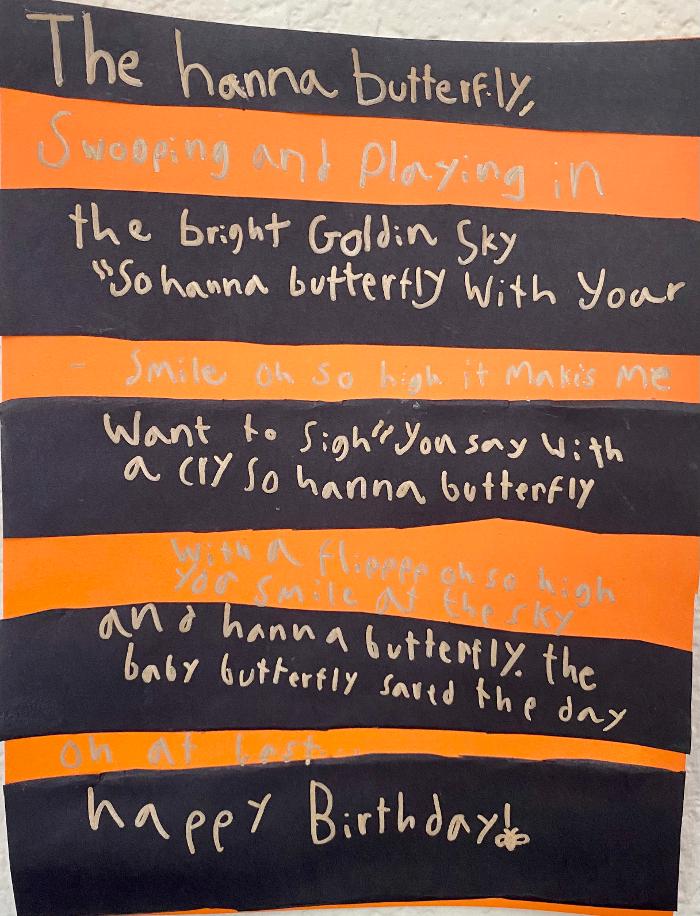 The hanna butterfly,
Swooping and Playing in
the bright Goldin Sky
"So hanna butterfly With Your
- Smile oh so high it Makis Me
Want to Sigh" You say with
a cry so hanna butterfly
With a flipppp oh so high
You Smile at the sky
and hanna butterfly. the
baby butterfly saved the day
oh at best...
happy Birthday!